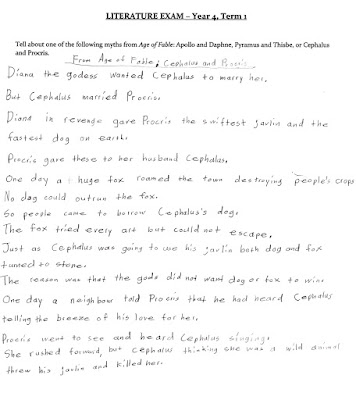 LITERATURE EXAM – Year 4, Term 1
Tell about one of the following myths from Age of Fable: Apollo and Daphne, Pyramus and Thisbe, or Cephalus
and Procris.
From Age of Fable; Cephalus and Procris
Diana the godess wanted Cephalas to marry her,
But Cephalus married Procris.
Diana in revenge gave Procris the swiftest javlin and the
fastest dog on earth.
Procris gave these to her husband Cephalus.
One day a huge fox roamed the town destroying people's crops
No dog could outrun the fox.
So people came to borrow Cephalus's dog.
The fox tried every art but could not escape,
Just as Cephalus was going to use his javlin both dog and fox
turned to stone.
The reason was that the gods did not want dog or fox to win.
One day a neighbour told Procris that he had heard Cephalus
telling the breeze of his love for her.
Procris went to see and heard Cephalus singing.
She rushed forward, but cephalus thinking she was a wild animal
threw his javlin and killed her.